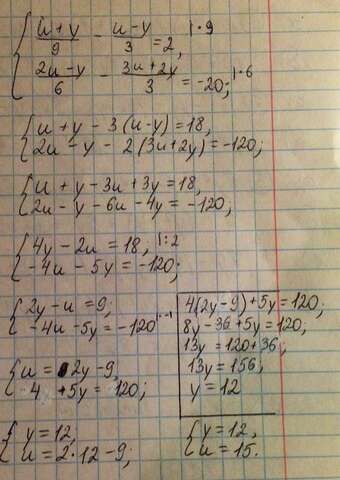 (u+y)/9 - (u-y)/3 = 2, |·9
(2u-y)/6 - (3u+2y)/3 = -20; |·6
u + y - 3(u-y) = 18,
2u - y - 2(3u+2y) = -120;
u + y - 3u + 3y = 18,
2u - y - 6u - 4y = -120;
4y - 2u = 18, |:2
-4u - 5y = -120;
2y - u = 9;
-4u - 5y = -120
u = 2y - 9,
-4 +5y = 120;
y = 12,
u = 2·12 - 9;
4(2y-9)+5y = 120;
8y - 36 + 5y = 120;
13y = 120 + 36;
13y = 156;
y = 12
y = 12,
u = 15.